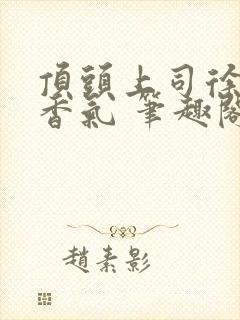 頂頭上司徐
香氣 筆趣閣
趙素影